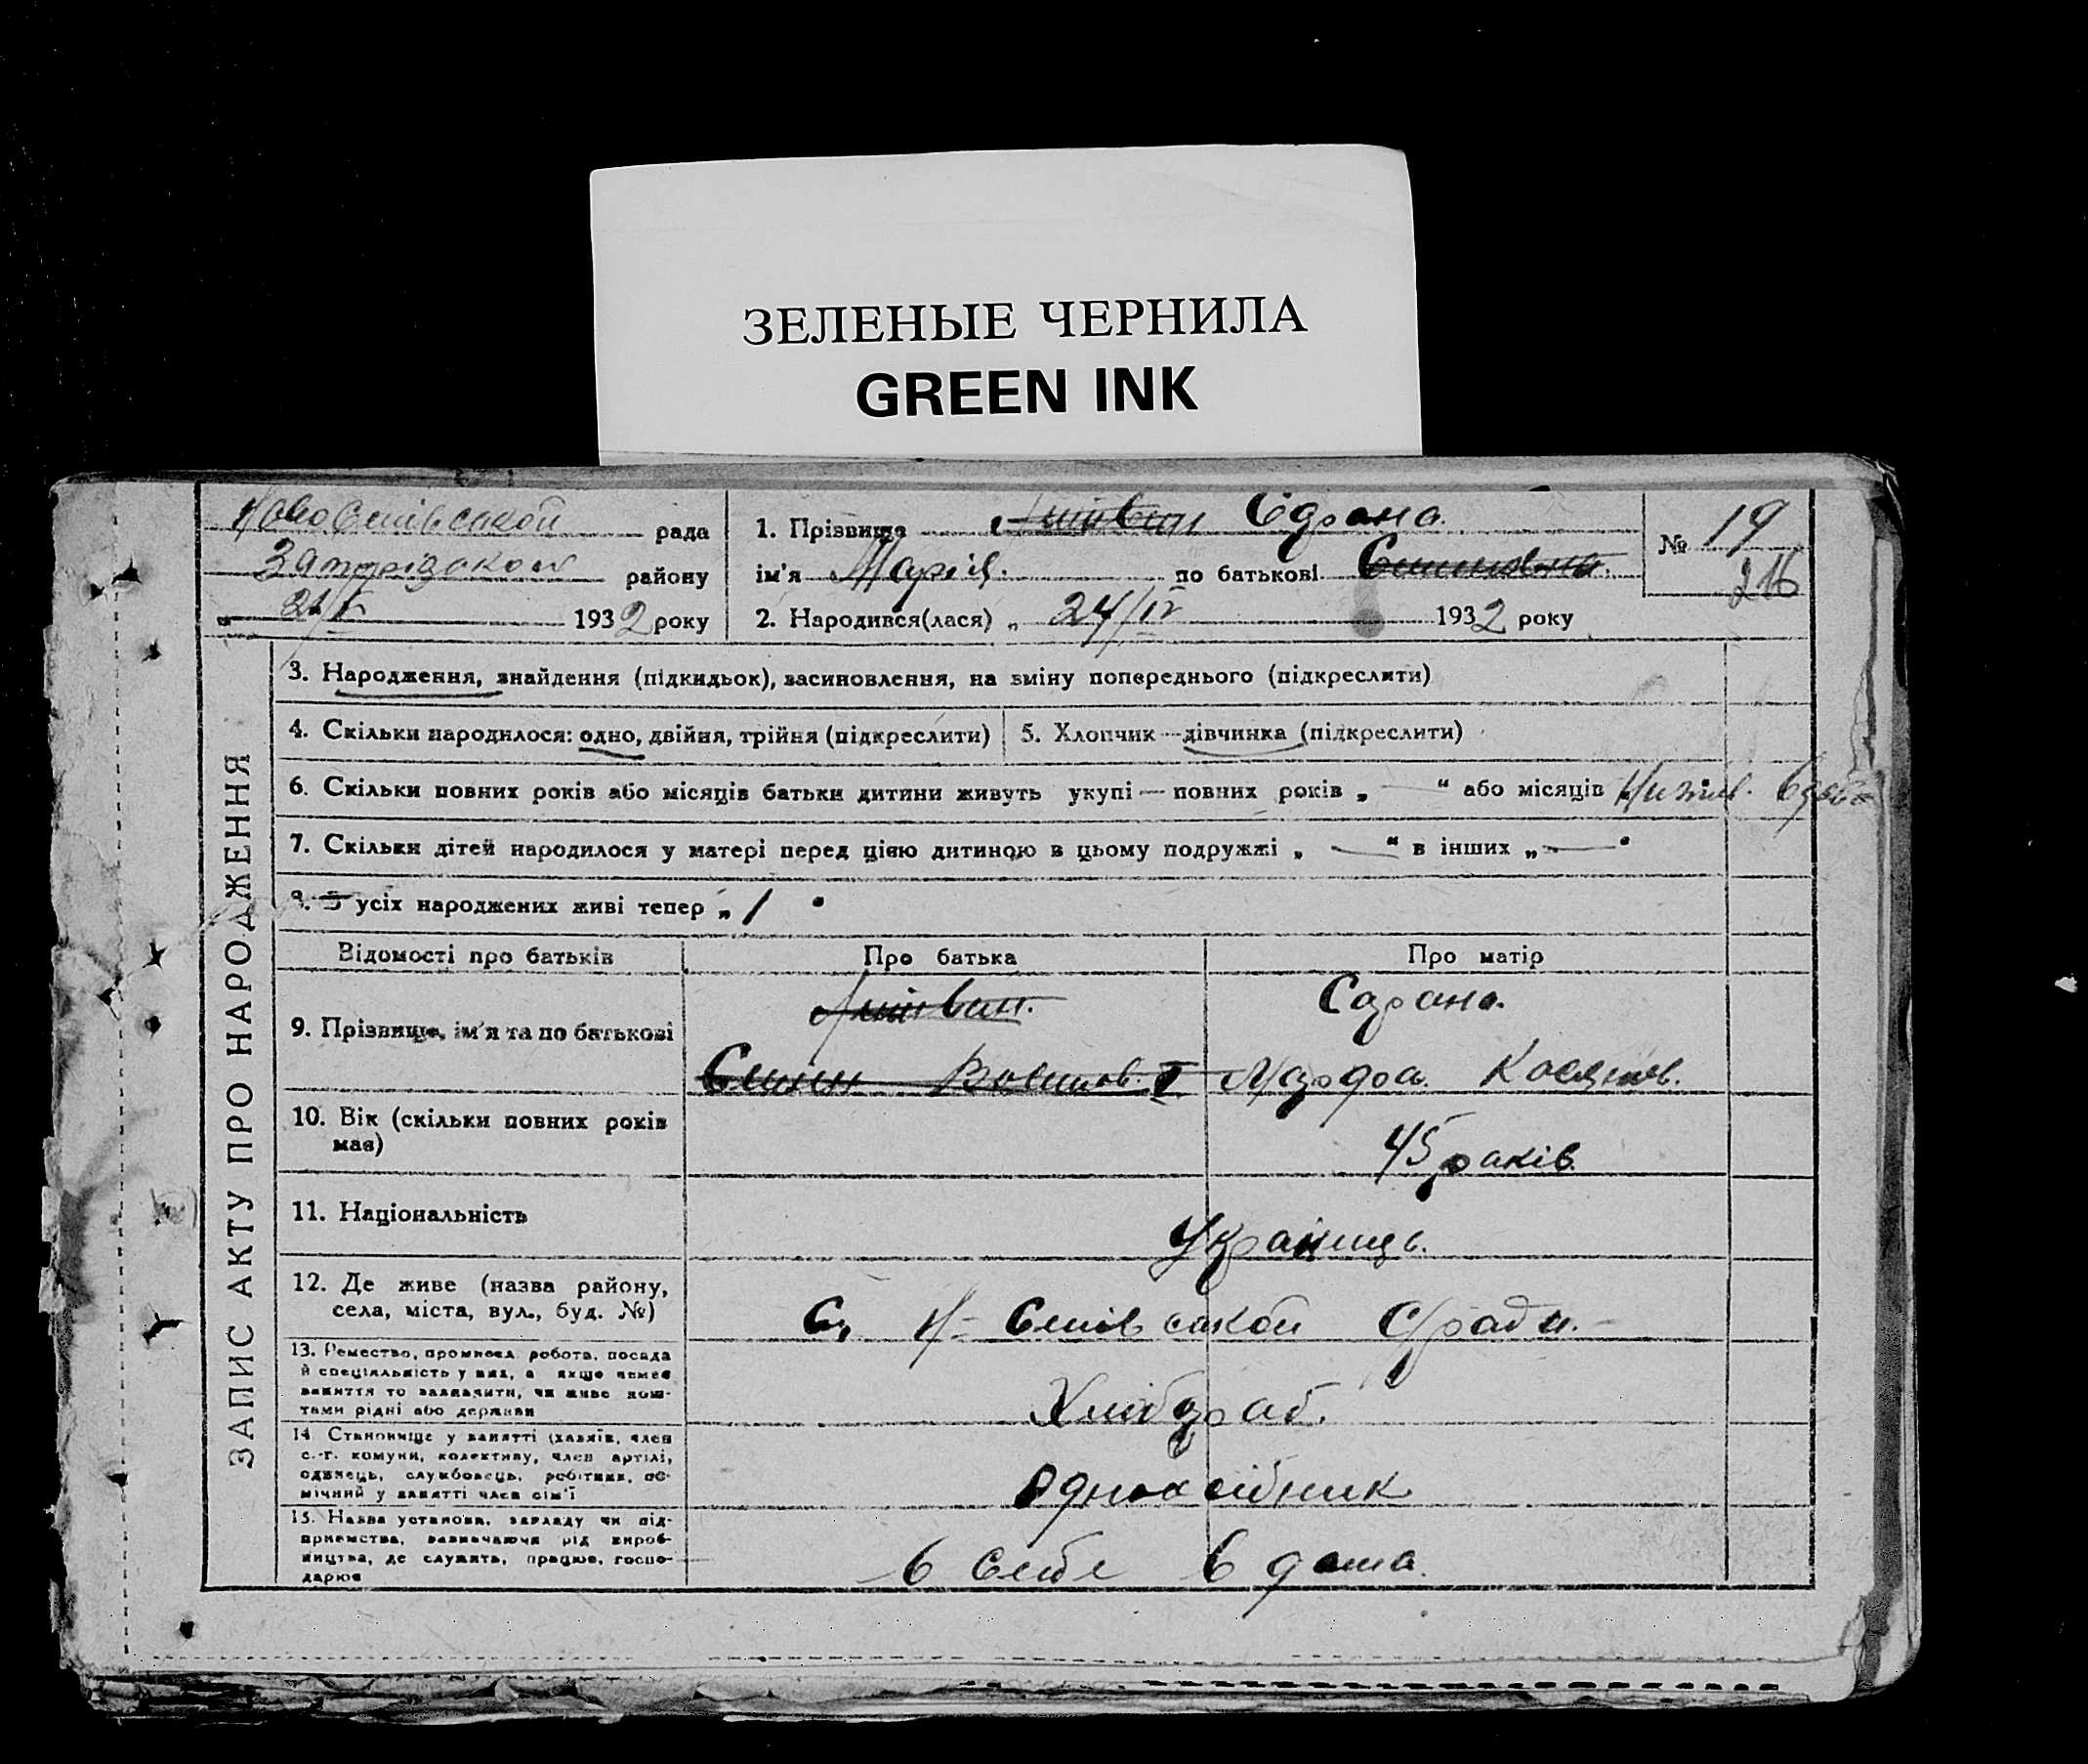 ЗЕЛЕНЫЕ ЧЕРНИЛА
GREEN INK
рада
району
21/V 1932 року
1. Прізвище
ім'я Марія. по батькові
2. Народився(лася) „ 24/IV 1932 року
№ 19
216
ЗАПИС АКТУ ПРО НАРОДЖЕННЯ
3. Народження, знайдення (підкидьок), засиновлення, на зміну попереднього (підкреслити)
4. Скільки народилося: одно, двійня, трійня (підкреслити)
5. Хлопчик — дівчинка (підкреслити)
6. Скільки повних років або місяців батьки дитини живуть укупі — повних років „ — “ або місяців
7. Скільки дітей народилося у матері перед цією дитиною в цьому подружжі „ — “ в інших „ — “
8. З усіх народжених живі тепер „ 1 “
Відомості про батьків
Про батька
Про матір
9. Прізвище, ім'я та по батькові
10. Вік (скільки повних років має)
45 років
11. Національність
Українць.
12. Де живе (назва району,
села, міста, вул., буд. №)
13. Ремество, промисел, робота, посада
й спеціяльність у них, а якщо немає
заняття то зазначити, чи живе кош-
тами рідні або держави
Хлібороб.
14. Становище у занятті (хазяїн, член
с.-г. комуни, колективу, член артілі,
одинець, службовець, робітник, по-
мічний у занятті член сім'ї
Одноосібник
15. Назва установи, закладу чи під-
приємства, зазначаючи рід вироб-
ництва, де служить, працює, госпо-
дарює
в себе в дома.